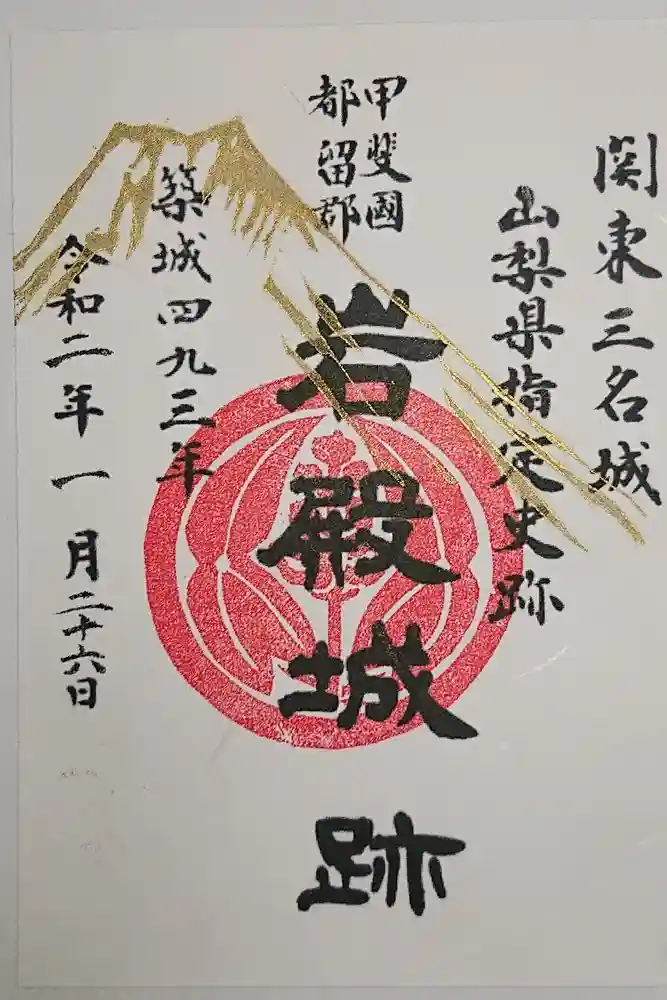 関東三名城
山梨県指定史跡
甲斐國
都留郡
岩殿城跡
築城四九三年
令和二年一月二十六日